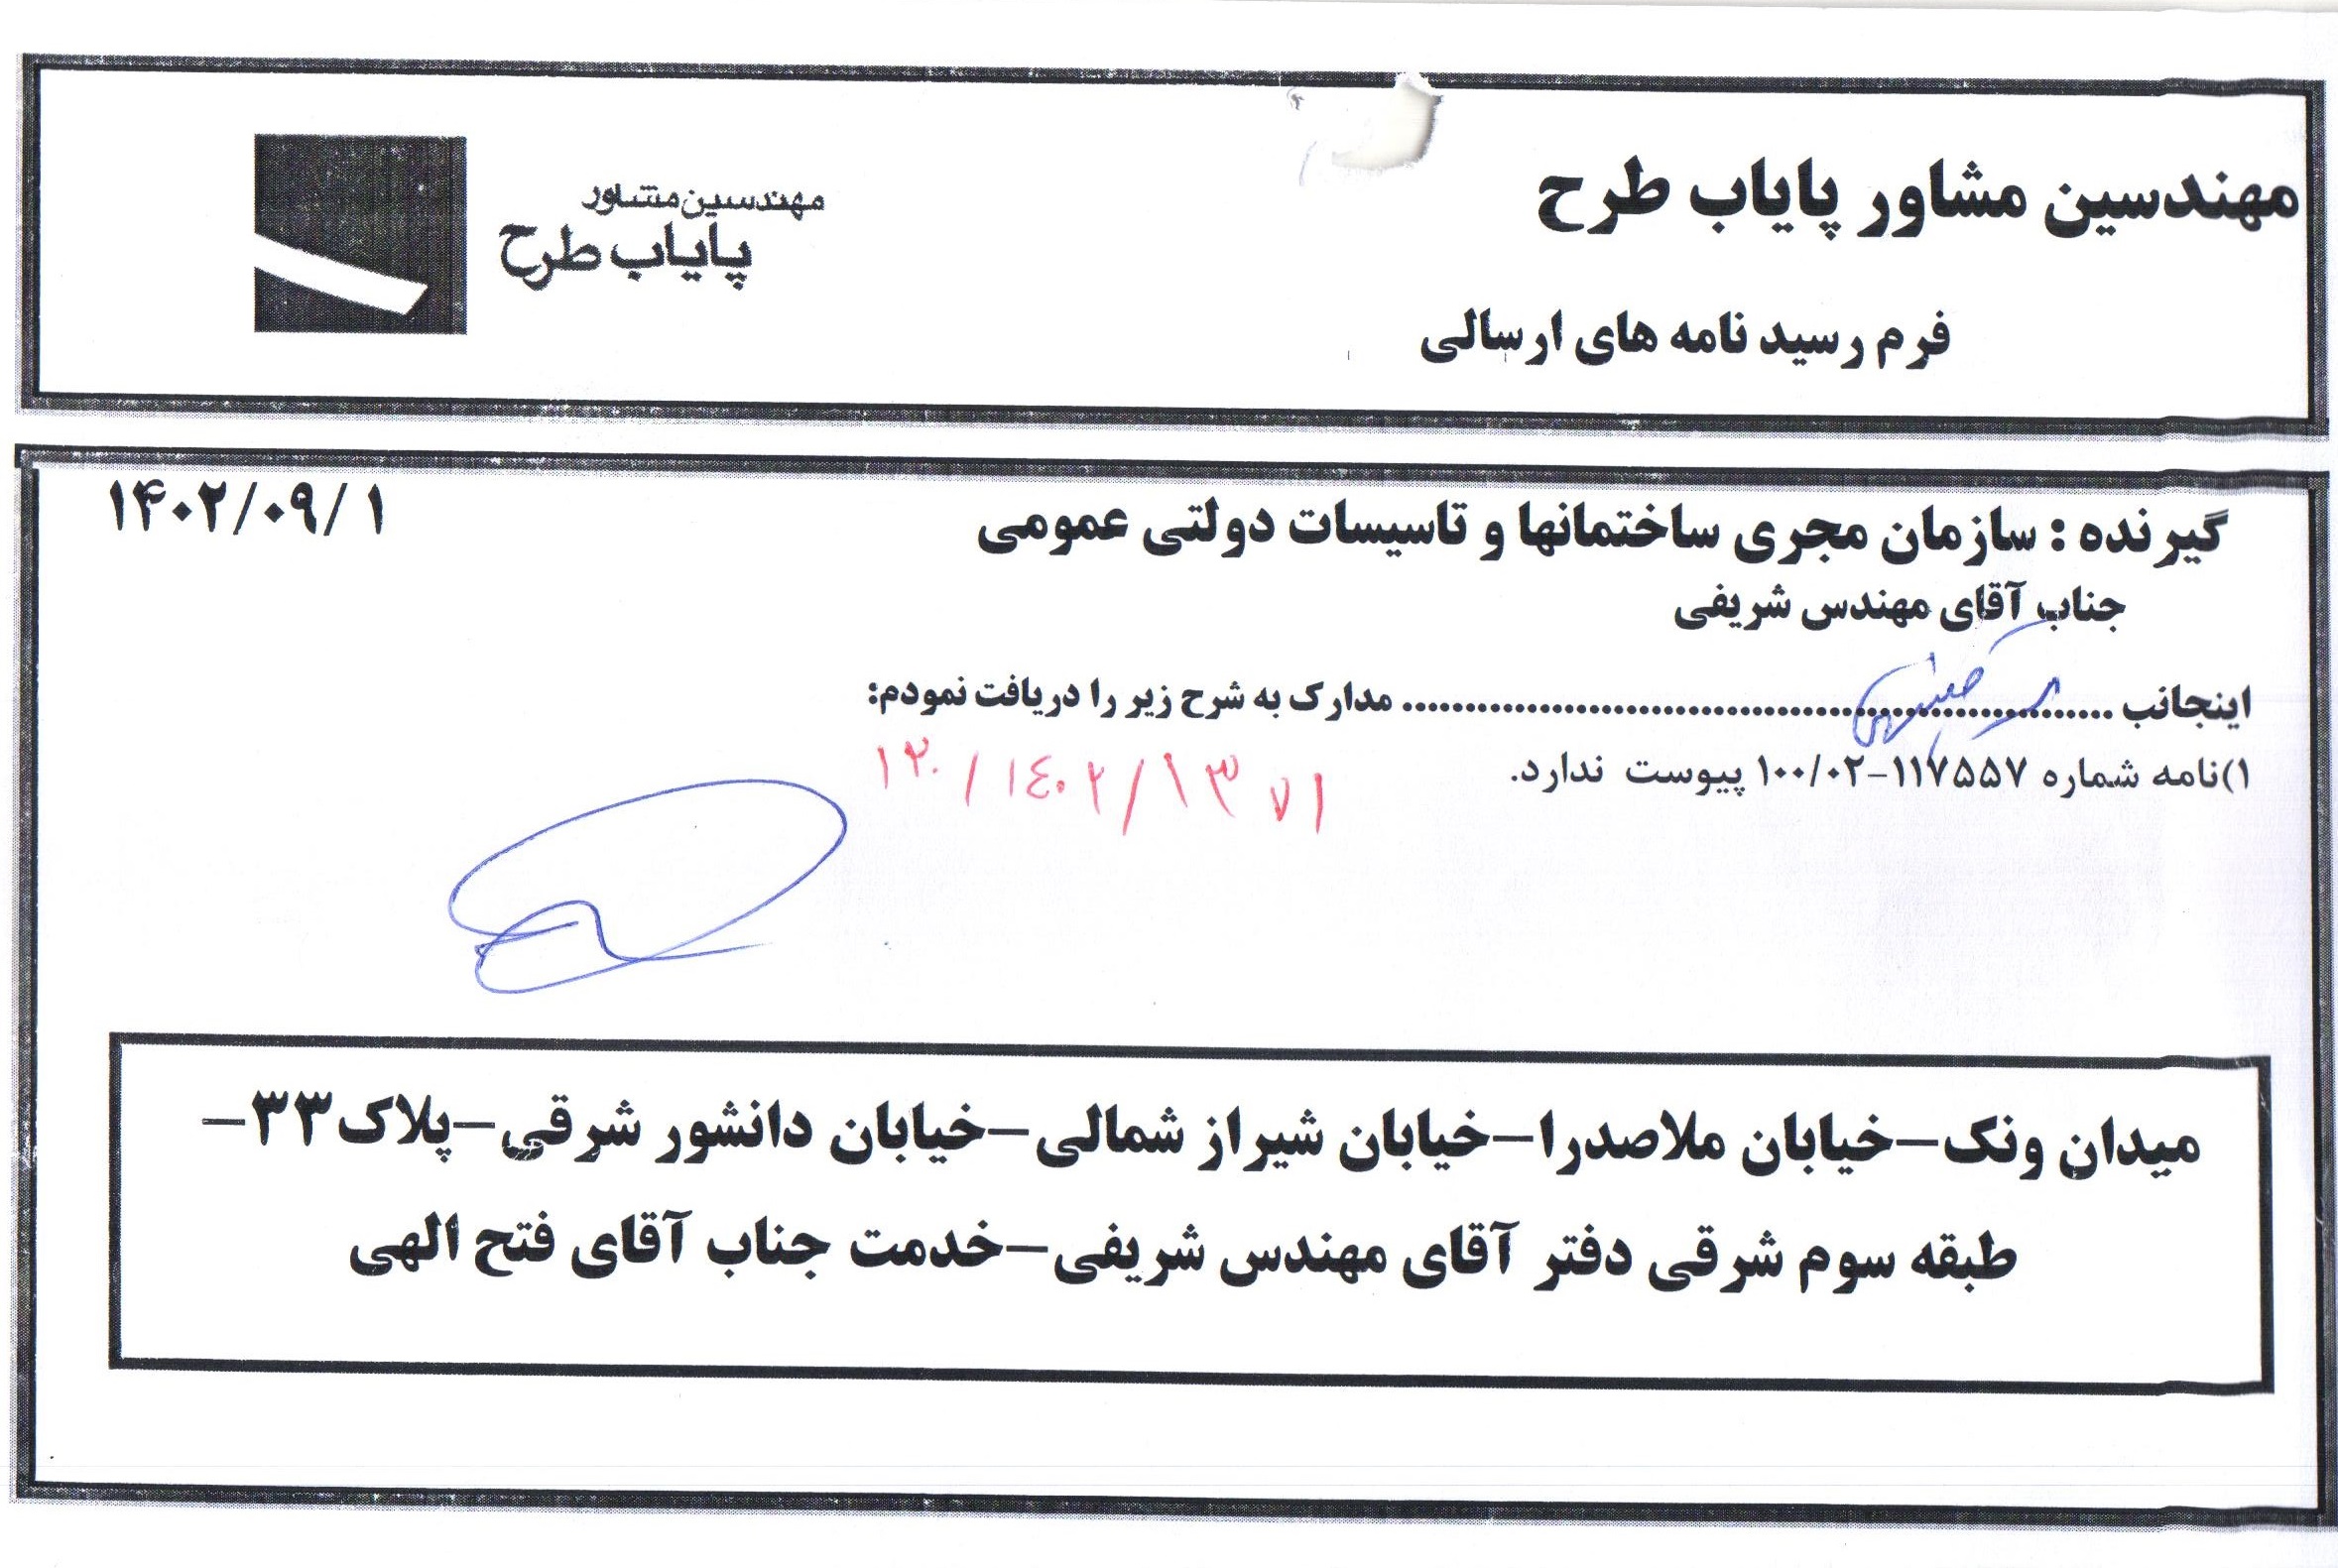 مهندسین مشاور پایاب طرح
مهندسین مشاور
پایاب طرح
فرم رسید نامه های ارسالی
گیرنده : سازمان مجری ساختمانها و تاسیسات دولتی عمومی
۱۴۰۲/۰۹/۱
جناب آقای مهندس شریفی
اینجانب ........................................................ مدارک به شرح زیر را دریافت نمودم:
۱)نامه شماره ۱۱۷۵۵۷-۱۰۰/۰۲ پیوست ندارد.
میدان ونک-خیابان ملاصدرا-خیابان شیراز شمالی-خیابان دانشور شرقی-پلاک۳۳-
طبقه سوم شرقی دفتر آقای مهندس شریفی-خدمت جناب آقای فتح الهی